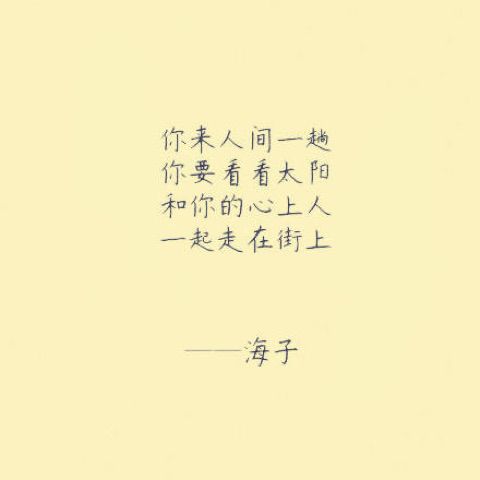 你来人间一趟
你要看看太阳
和你的心上人
一起走在街上
——海子